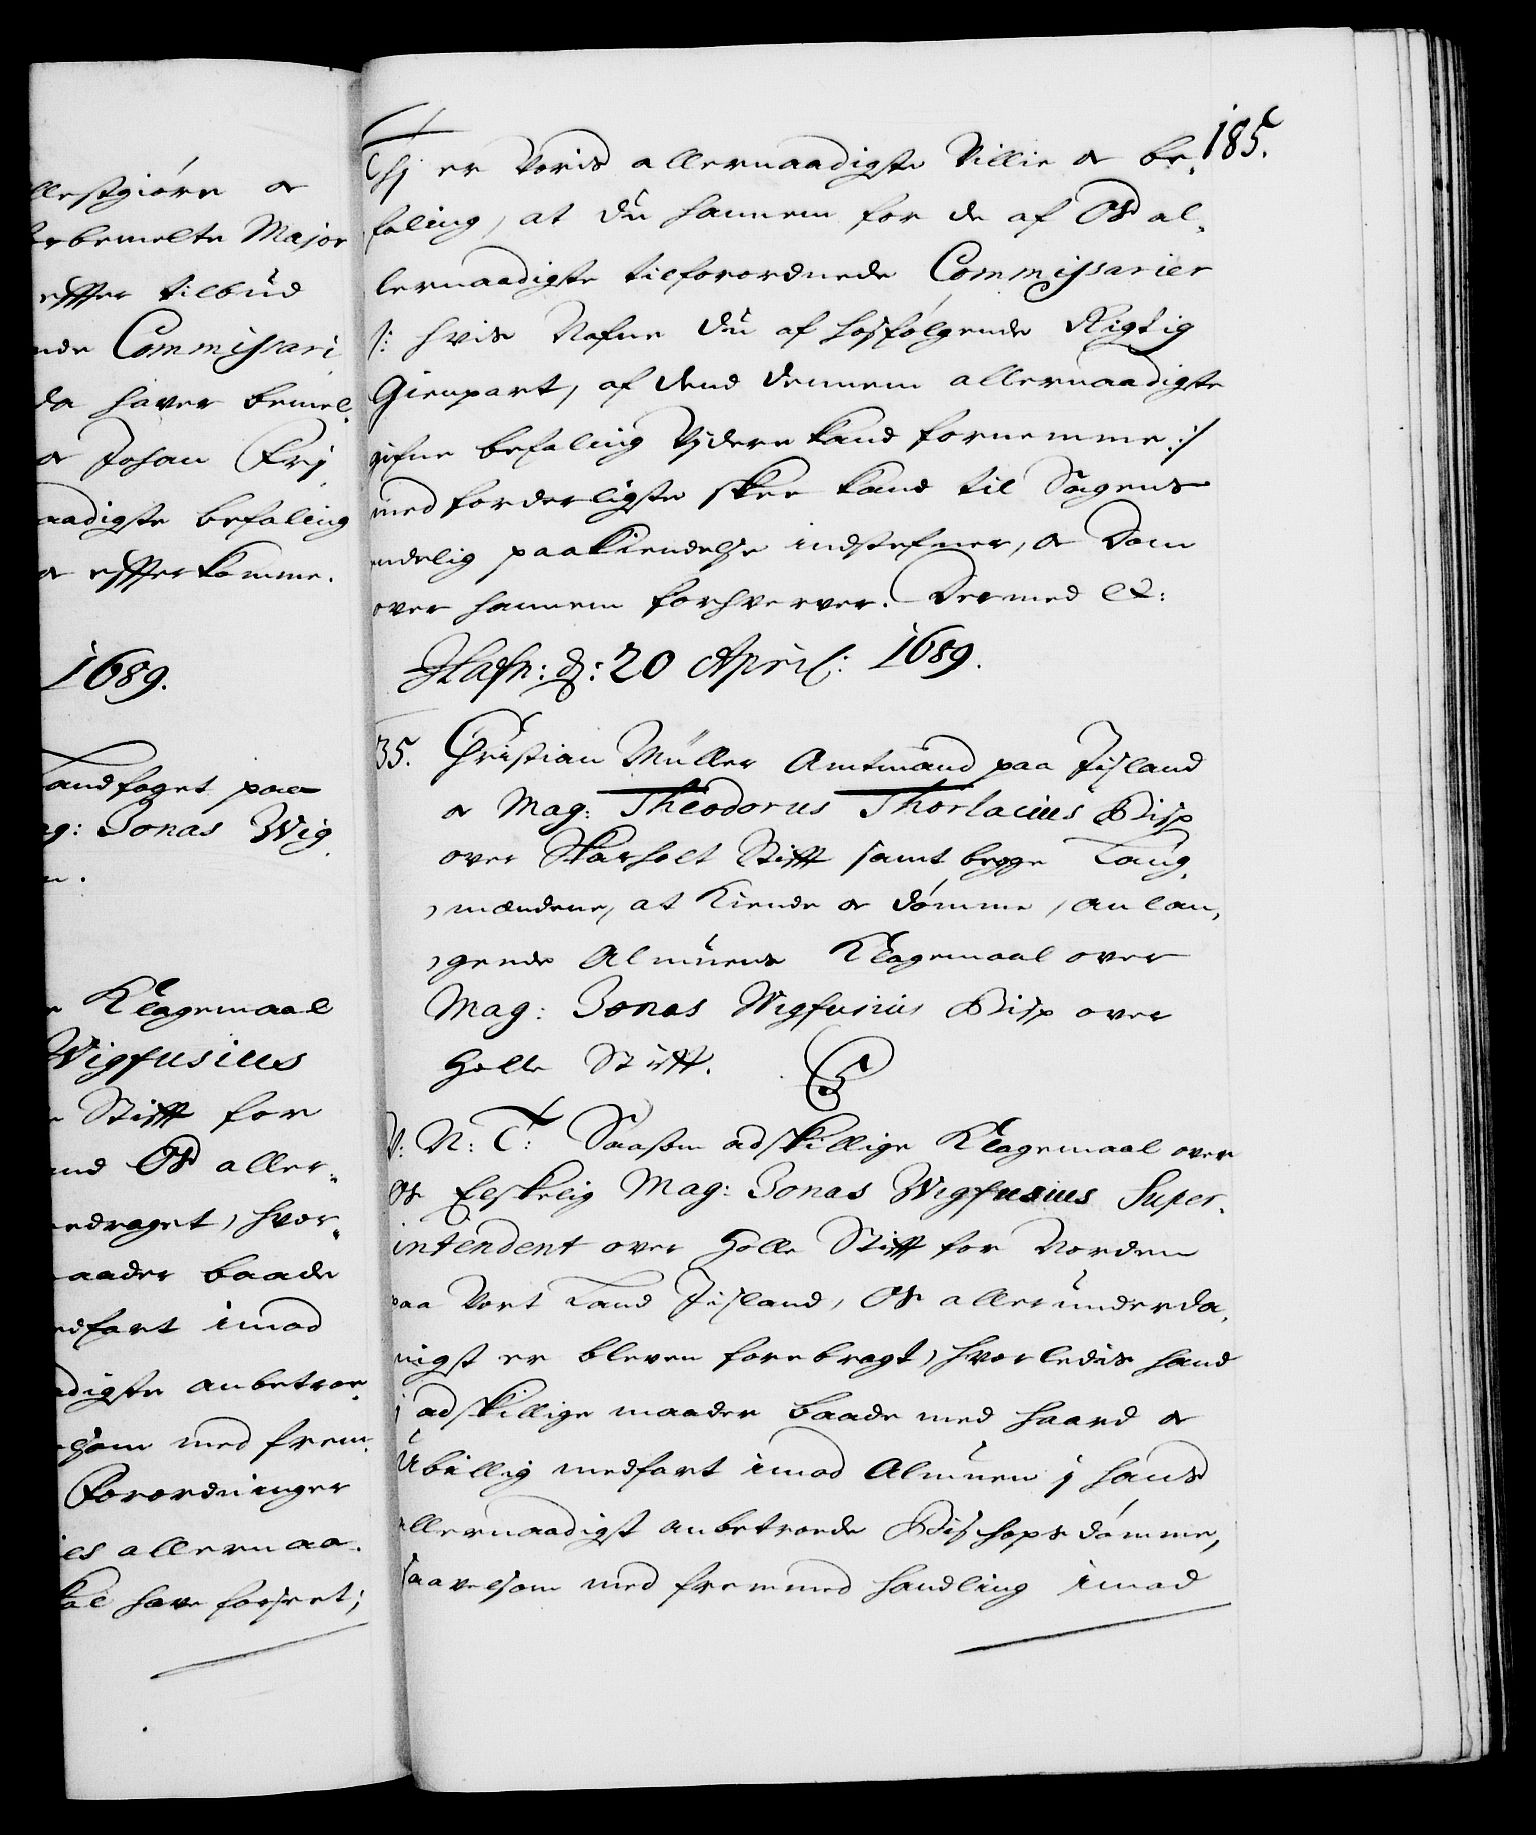 llestgiøre og
bemelte Major
effter tilbud
nde Commissari
da haver bemel-
og Johan Frj
aadigste befaling
og effterkomme.
1689.
Landfoget paa
ag: Jonas Wig
e Klagemaal
Wigfusius
e Stifft for
end Os aller-
edraget, hvor-
aader baade
edfart imod
adigste anbetroe
elsom med frem-
Forordninger
es allernaa-
kal have forseet;
185.
Thj er Voris allernaadigste Villie og be-
faling, at du hannem for de af Os al-
lernaadigste tilforordnede Commissarier
/: hvis Nafne du af hosfølgende Rigtig
Gienpart, af dend dennem allernaadigste
gifne befaling Vjdere kand fornemme :/
med forderligste skee kand til Sagens
endelig paakiendelse indstefner, og Dom
over hannem forhverver. Dermed etc:
Hafn: d: 20 April: 1689.
35. Christian Müller Amtmand paa Jisland
og Mag: Theodorus Thorlacius Bisp
over Skarholt Stifft samt begge Laug-
mændene, at Kiende og dømme, anlan-
gende Almuens Klagemaal over
Mag: Jonas Wigfusius Bisp over
Holle Stifft.
V: N: T: Saasom adskillige Klagemaal over
Os Elskelig Mag: Jonas Wigfusius Super-
intendent over Holle Stifft for Norden
paa Vort Land Jisland, Os allerunderda-
nigst er bleven forebragt, hvorledis hand
j adskillige maader baade med haard og
Ubillig medfart imod Almuen j hans
allernaadigst anbetroede Bischopsdømme,
saavelsom med fremmed handling imod